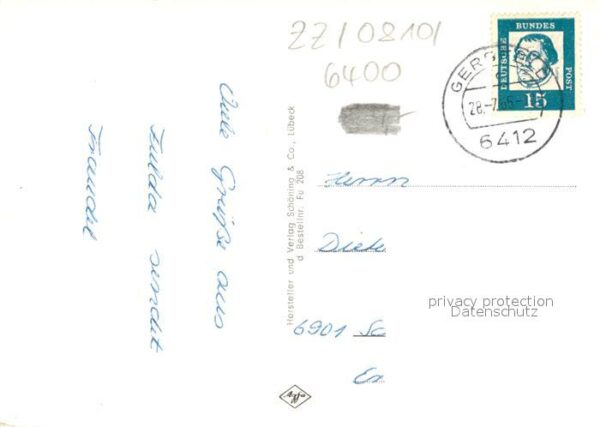 22/02101
6400
DEUTSCHE
BUNDES
POST
15
28.-7.65
6412
Viele Grüße aus
Fulda sendet
Traudel
Hersteller und Verlag Schöning & Co., Lübeck
Bestellnr. Fu 208
Herrn
6901
privacy protection
Datenschutz
Agfa